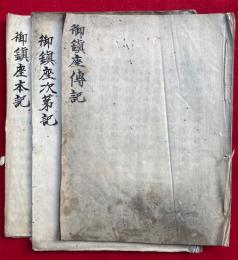 御鎮座傳記
御鎮座次第記
御鎮座本記